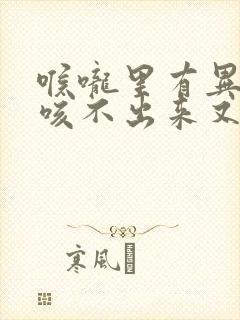 喉嚨里有異
咳不出来又
寒风